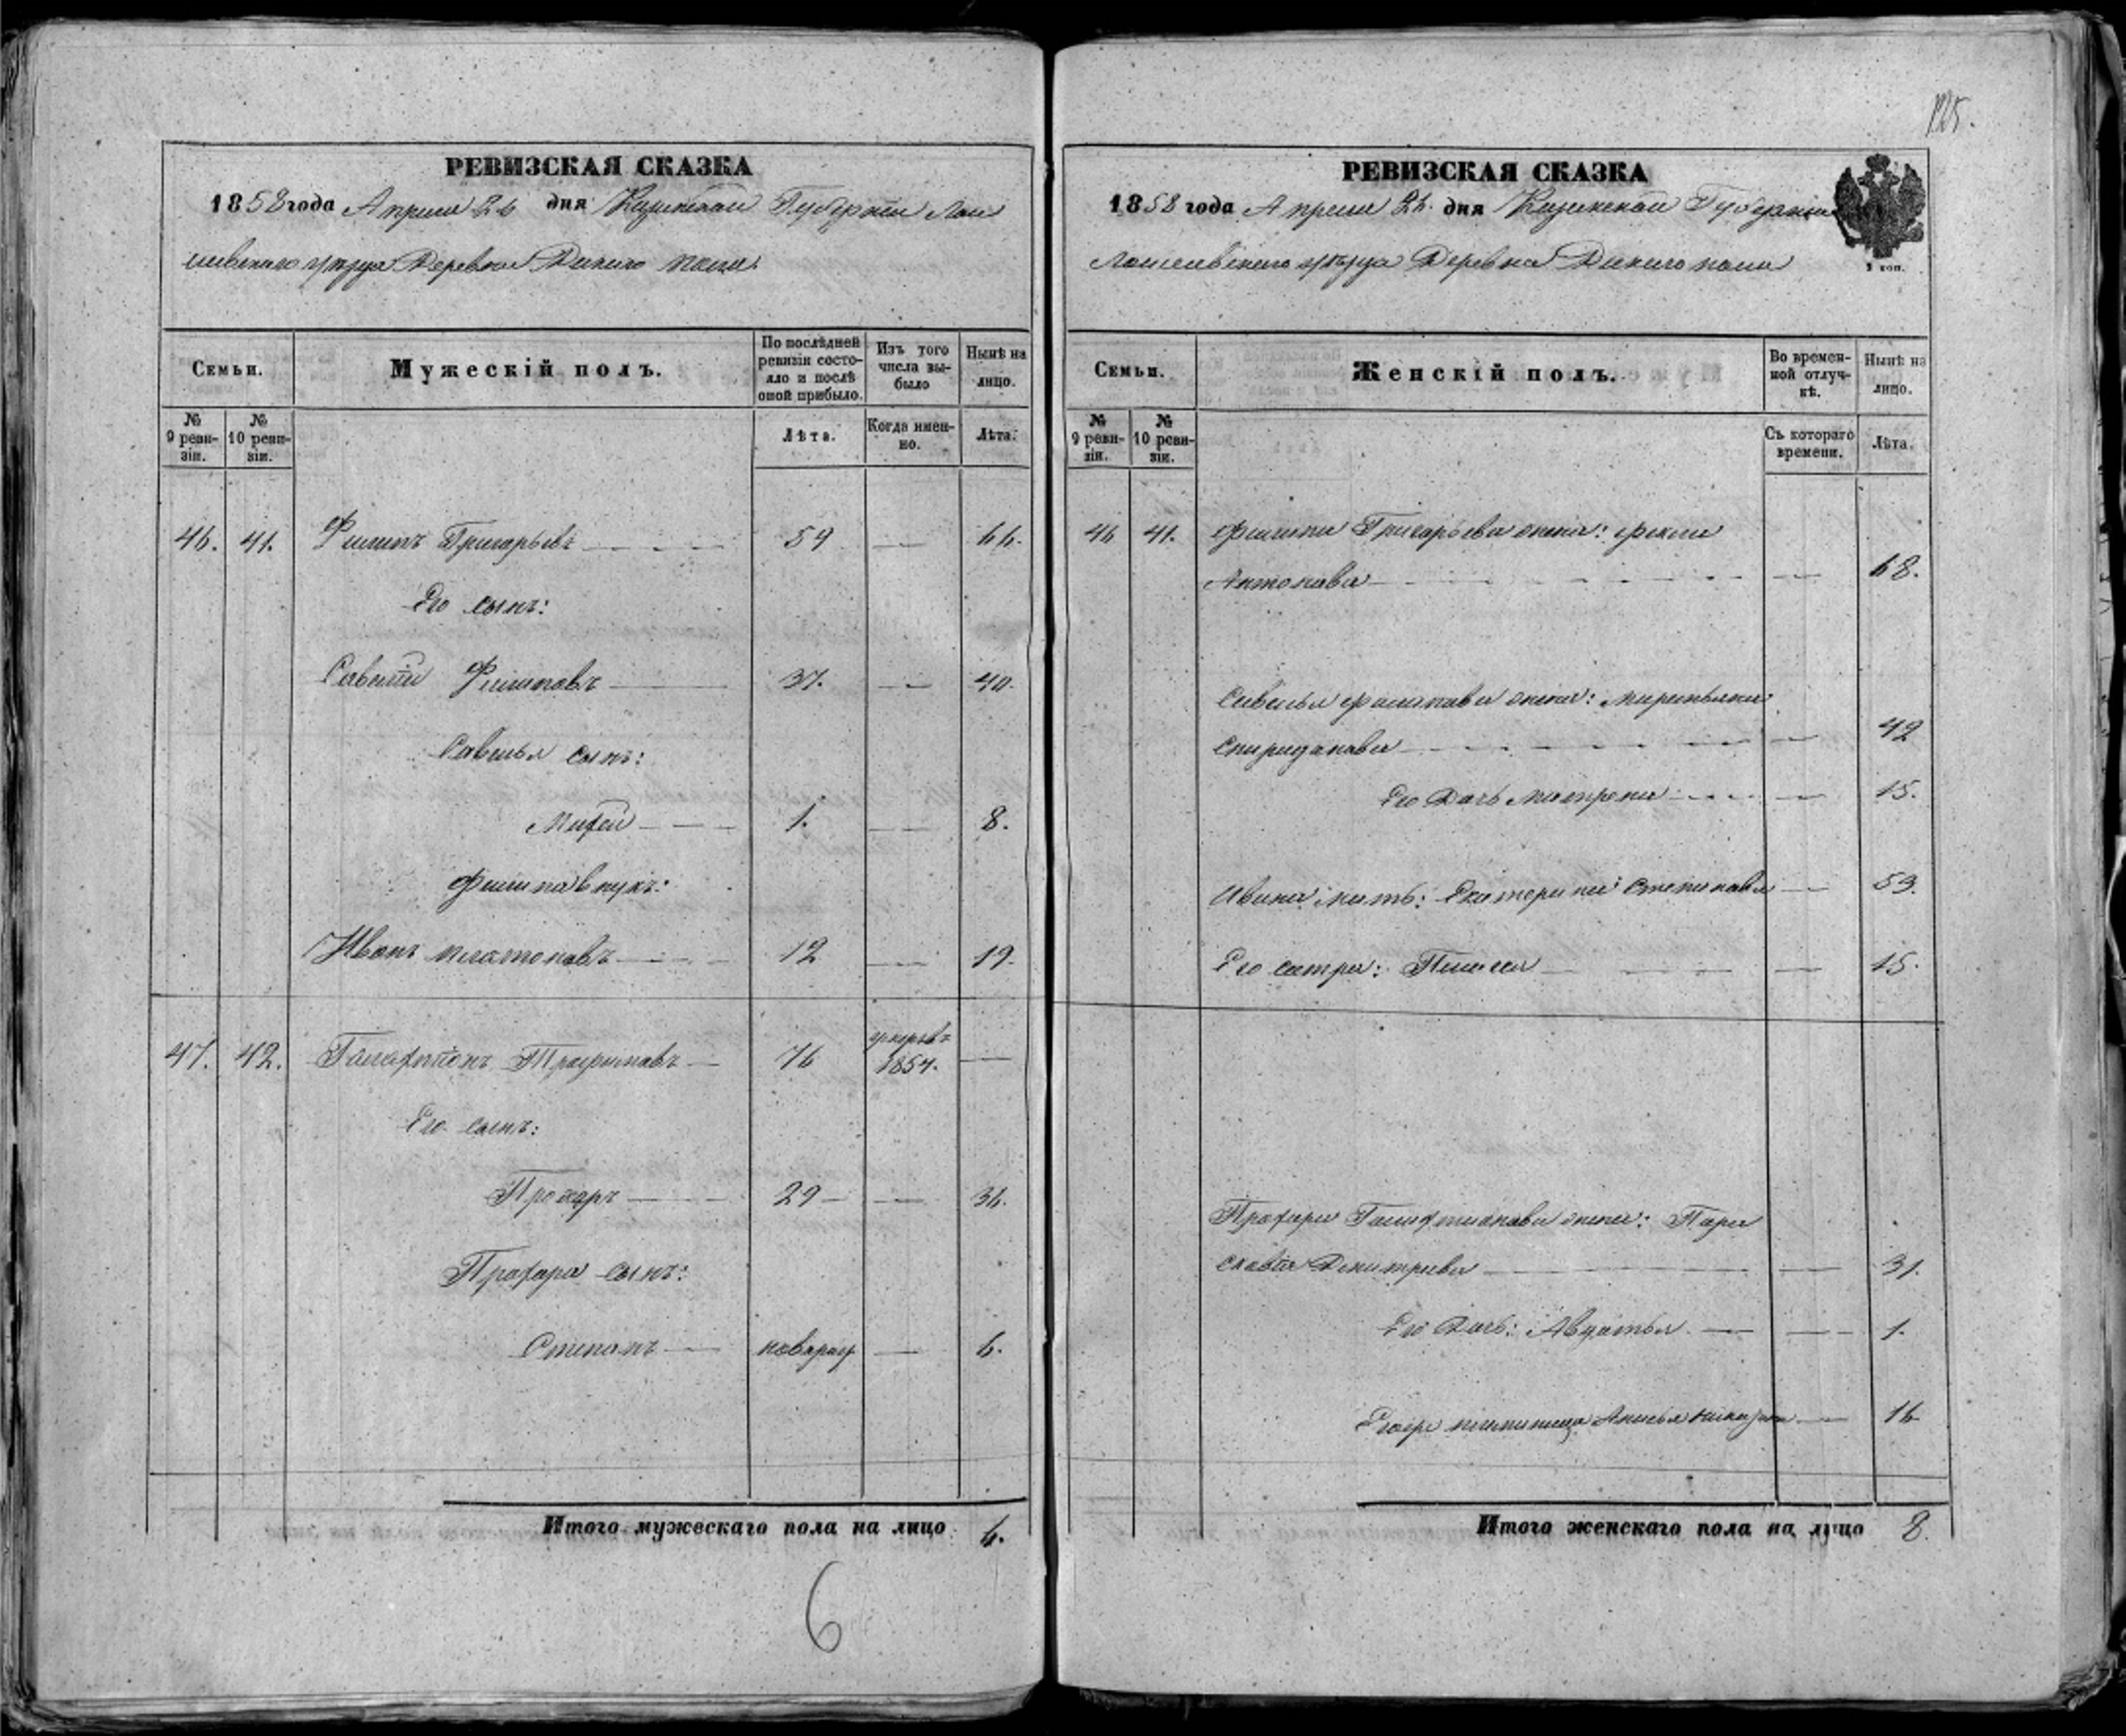 РЕВИЗСКАЯ СКАЗКА
1858 года Апреля 26 дня Казанской Губернии Лаи
шевскаго уѣзда Деревни Дикаго поля
Семьи.
Мужескій полъ.
По послѣдней ревизіи состояло и послѣ оной прибыло.
Изъ того числа выбыло
Нынѣ на лицо.
№ 9 ревизіи.
№ 10 ревизіи.
Лѣта.
Когда именно.
Лѣта.
46. 41. Филипъ Григорьевъ 59 — 66.
Его сынъ:
Савелій Филиповъ 37. — 40.
Савелья сынъ:
Мафей 1. — 8.
Филипа внукъ:
Иванъ Платоновъ 12 — 19.
47. 42. Трофимовъ 76 1854. —
Его сынъ:
Прохоръ 29 — 36.
Прохора сынъ:
Степанъ — 6.
Итого мужескаго пола на лицо 6.
6
125.
РЕВИЗСКАЯ СКАЗКА
1858 года Апреля 26. дня Казанской Губернии
Лаишевскаго уѣзда Деревни Дикаго поля
3 коп.
Семьи.
Женскій полъ.
Во временной отлучкѣ.
Нынѣ на лицо.
№ 9 ревизіи.
№ 10 ревизіи.
Съ котораго времени.
Лѣта.
46 41. Филипа Григорьева жена: Фекла
Антонова — 68.
Савелья Филипова жена: Маремьяна
Спиридонова — 42
Его дочь Матрена — 15.
Ивана мать: Екатерина Степанова — 53.
Его сестра: — 15.
Прохора жена: Пара
сковья Дмитриева — 31.
Его дочь: Авдотья — 1.
Анисья — 16
Итого женскаго пола на лицо 8.